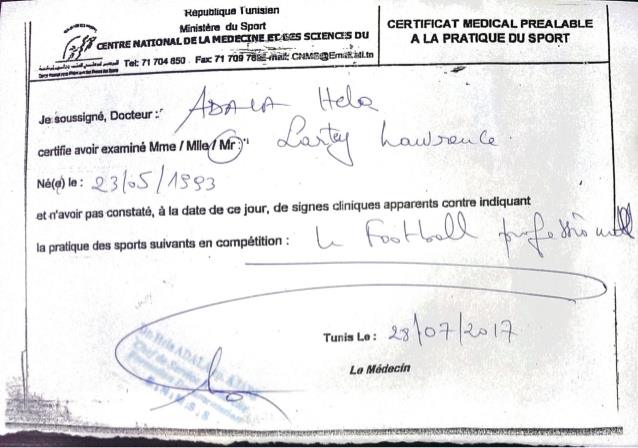 République Tunisien
Ministère du Sport
CENTRE NATIONAL DE LA MEDECINE ET DES SCIENCES DU
Tel: 71 704 850 Fax: 71 709 mail: CNMS@Email.tn
CERTIFICAT MEDICAL PREALABLE
A LA PRATIQUE DU SPORT
Je soussigné, Docteur : ADALA Hela
certifie avoir examiné Mme / Mlle / Mr : Lartey Lawrence
Né(e) le : 23/05/1993
et n'avoir pas constaté, à la date de ce jour, de signes cliniques apparents contre indiquant
la pratique des sports suivants en compétition : Le Football professionnel
Tunis Le : 28/07/2017
Le Médecin
Dr Hela ADALA
Chef de Service